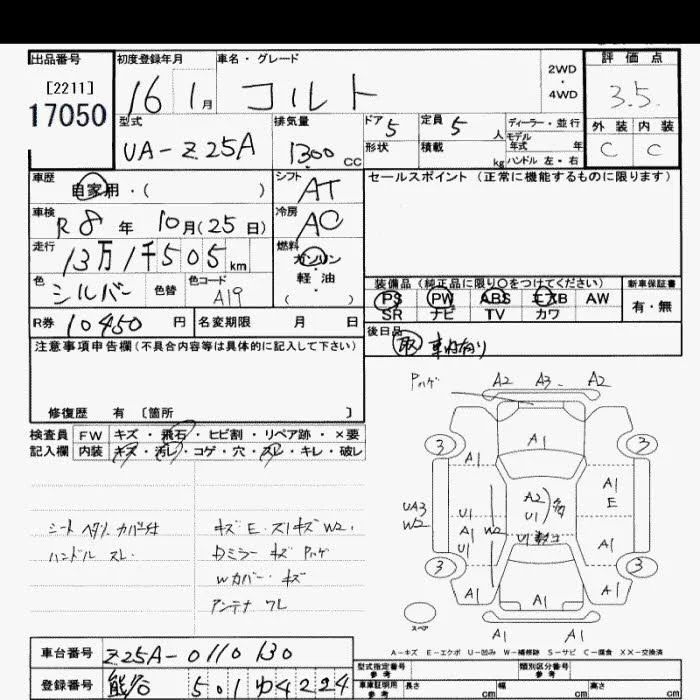 出品番号 初度登録年月 車名・グレード 評価点
[2211] 2WD
17050 16 1月 コルト ・ 3.5
4WD
型式 排気量 ドア 5 定員 5人 ディーラー・並行 外装 内装
UA-Z25A 1300 CC 形状 積載 kg モデル年式 年 C C
ハンドル 左・右
車歴 自家用・( ) シフト AT セールスポイント (正常に機能するものに限ります)
車検 R8年 10月(25日) 冷房 AC
走行 13万1千505km 燃料 ガソリン
軽・油
( )
色 シルバー 色替 色コード A19 装備品 (純正品に限り○をつけてください) 新車保証書
PS PW ABS エアB AW 有・無
SR ナビ TV カワ
R券 10450円 名変期限 月 日 後日品
注意事項申告欄 (不具合内容等は具体的に記入して下さい) 取 車内有り
修復歴 有 [箇所 ]
検査員 FW キズ・飛石・ヒビ割・リペア跡・×要
記入欄 内装 キズ・汚レ・コゲ・穴・スレ・キレ・破レ
Pハゲ A2 A3 A2
3 A1 A1 3
A1 E
UA3 W2 U1 A2 U1 多
A1 W2 U1 A1
U1
3 3
A1 A1 A1
スペア A1
シート ヘタリ カバー付 キズ E スリキズ W2
ハンドル スレ Dミラー キズ Pハゲ
Wカバー キズ
アンテナ ワレ
A-キズ E-エクボ U-凹み W-補修跡 S-サビ C-腐食 XX-交換済
車台番号 Z25A-0110130 型式指定番号 参考 類別区分番号 参考
登録番号 熊谷 501 ゆ 4224 車庫証明用 参考 長さ cm 幅 cm 高さ cm